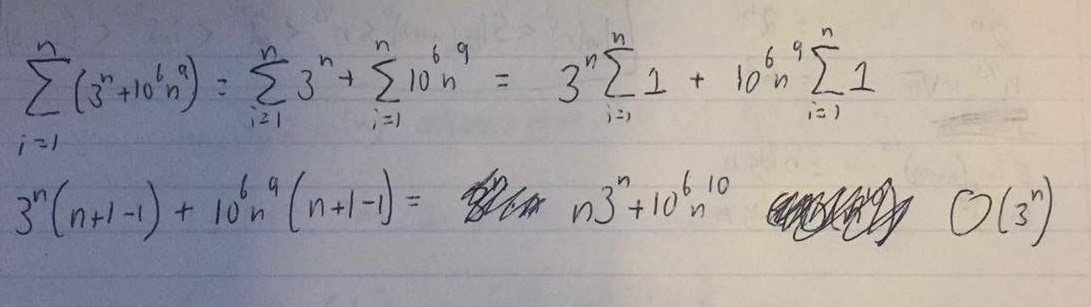 ∑_{i=1}^{n} (3^n + 10^6 n^9) = ∑_{i=1}^{n} 3^n + ∑_{i=1}^{n} 10^6 n^9 = 3^n ∑_{i=1}^{n} 1 + 10^6 n^9 ∑_{i=1}^{n} 1
3^n (n+1-1) + 10^6 n^9 (n+1-1) = n3^n + 10^6 n^10 O(3^n)